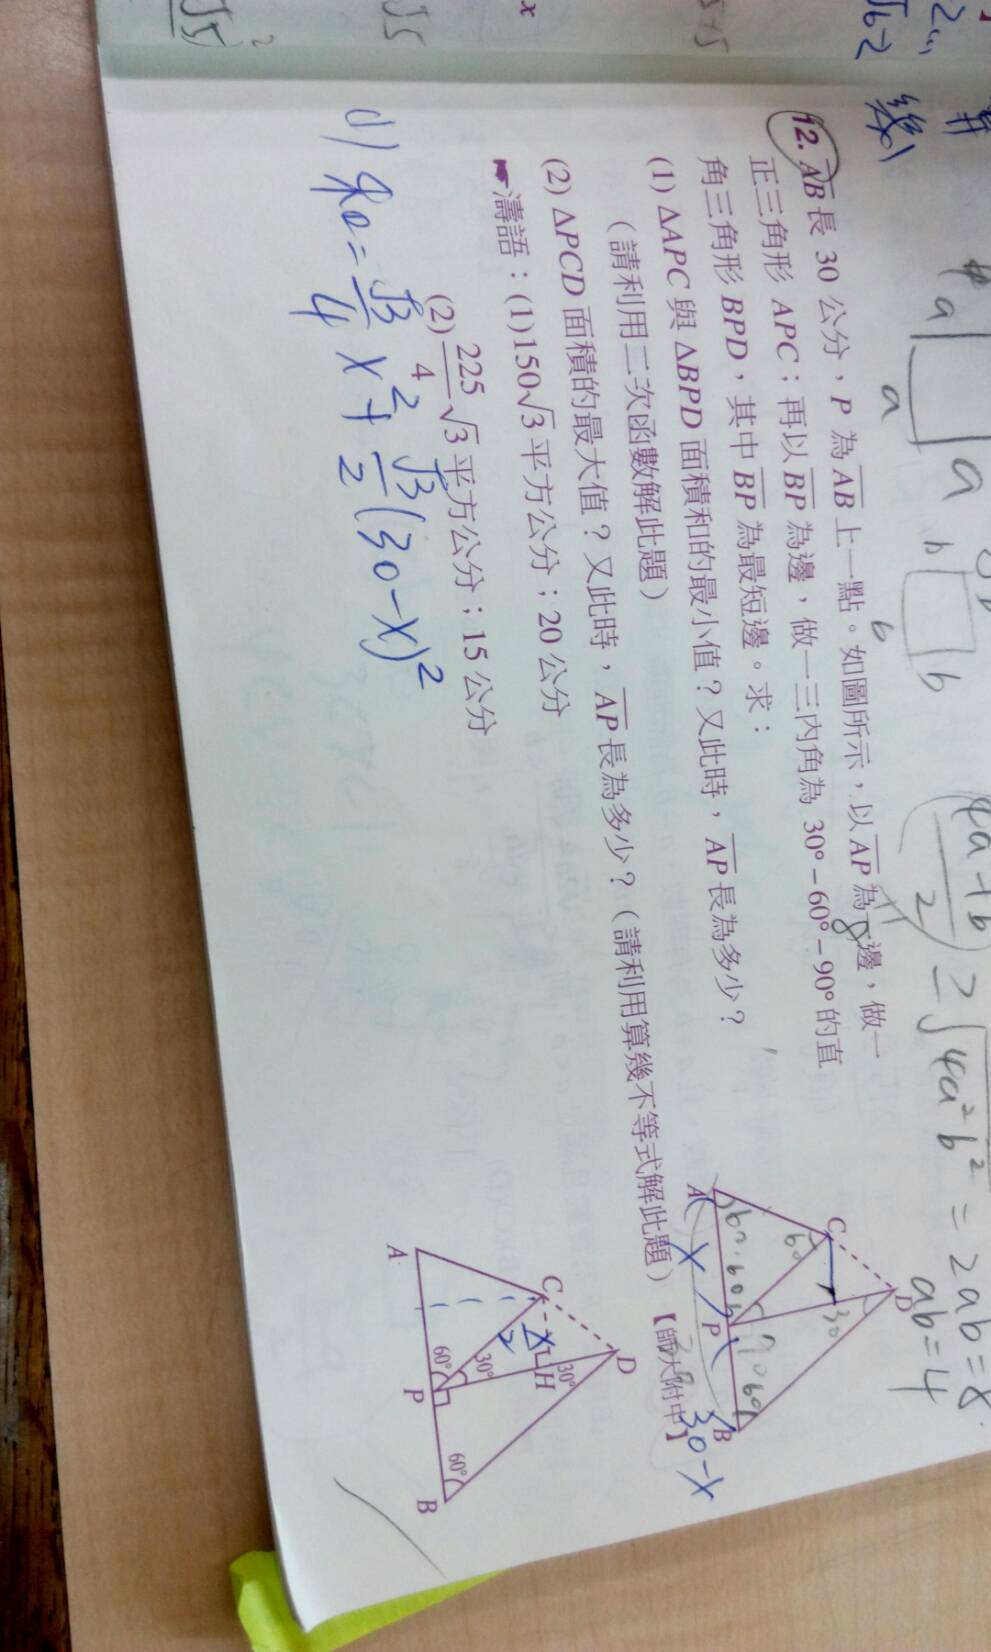 12. AB長 30 公分，P 為 AB 上一點。如圖所示，以 AP 為一邊，做一
正三角形 APC；再以 BP 為邊，做一三內角為 30°–60°–90° 的直
角三角形 BPD，其中 BP 為最短邊。求：
(1) ΔAPC 與 ΔBPD 面積和的最小值？又此時，AP 長為多少？
（請利用二次函數解此題）
(2) ΔPCD 面積的最大值？又此時，AP 長為多少？（請利用算幾不等式解此題）【師大附中】
☛濤語：(1)150√3 平方公分；20 公分
(2) 225/4 √3 平方公分；15 公分
= √3/4 x² + √3/2 (30-x)²
a
a
a
b
b
b
4a+b/2 ≥ √4a²b² = 2ab = 8
ab=4
D
C
60
30
60
60
90
60
A
P
B
x
30-x
D
C
x/2
H
30°
30°
60°
60°
A
P
B
x
√5